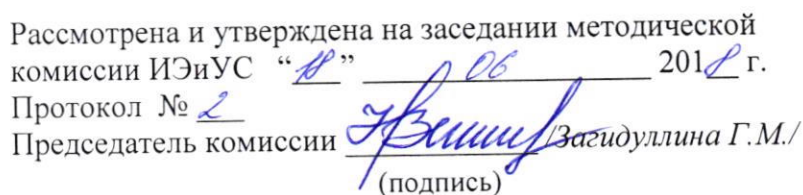 Рассмотрена и утверждена на заседании методической
комиссии ИЭиУС “18” 06 2018 г.
Протокол № 2
Председатель комиссии /Загидуллина Г.М./
(подпись)